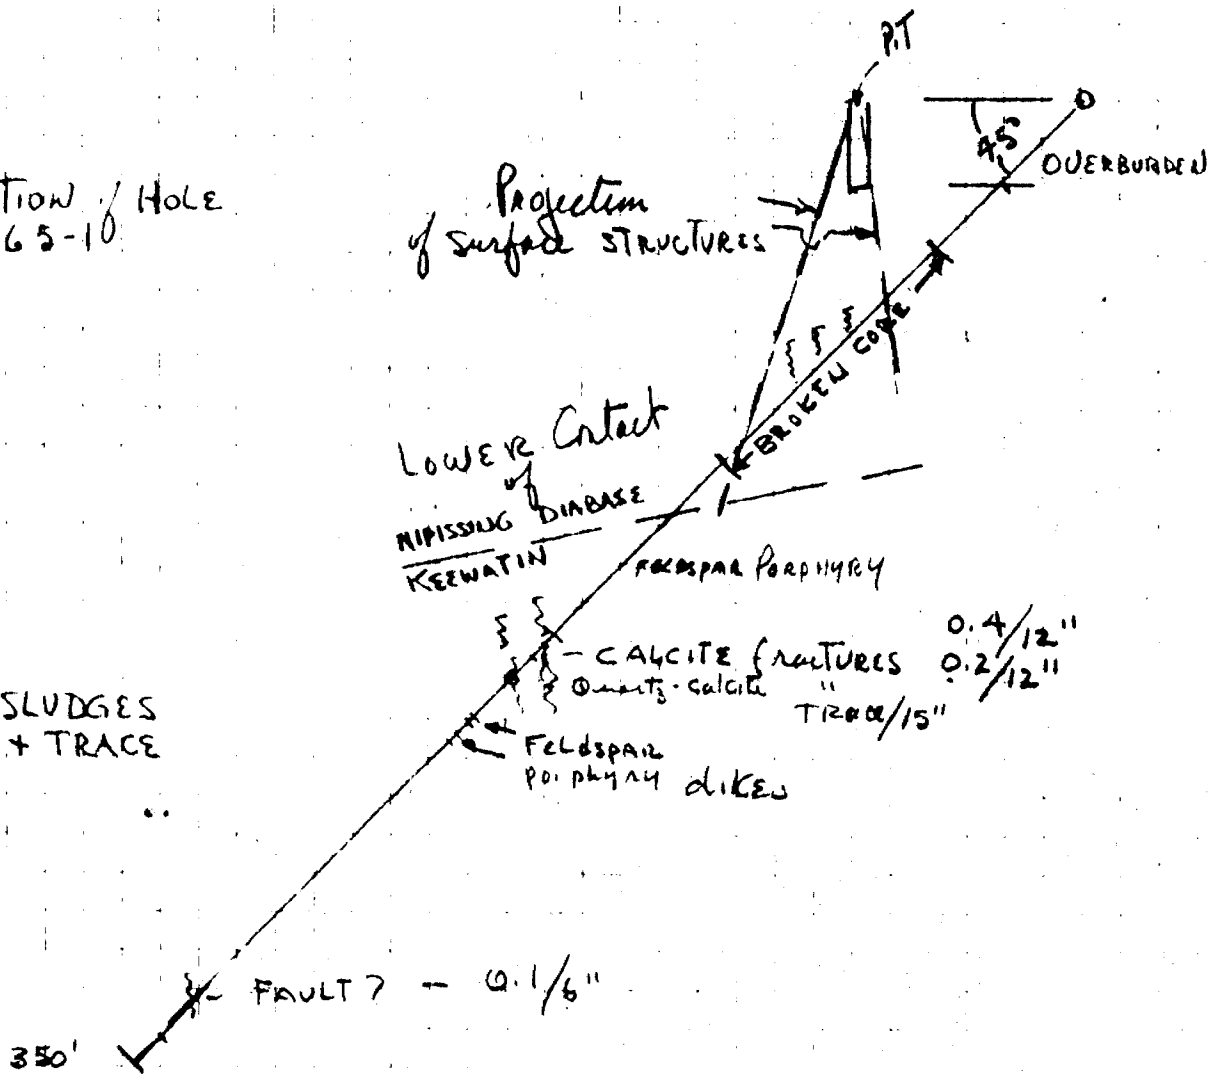 PIT
45°
OVERBURDEN
TION of HOLE
65-10
Projection
of Surface STRUCTURES
BROKEN CORE
LOWER Contact
of
NIPISSING DIABASE
KEEWATIN
FELDSPAR PORPHYRY
- CALCITE fractures 0.4/12"
0.2/12"
Quartz-calcite " TRACE/15"
SLUDGES
+ TRACE
FELdSPAR
porphyry dikes
- FAULT? - 0.1/6"
350'